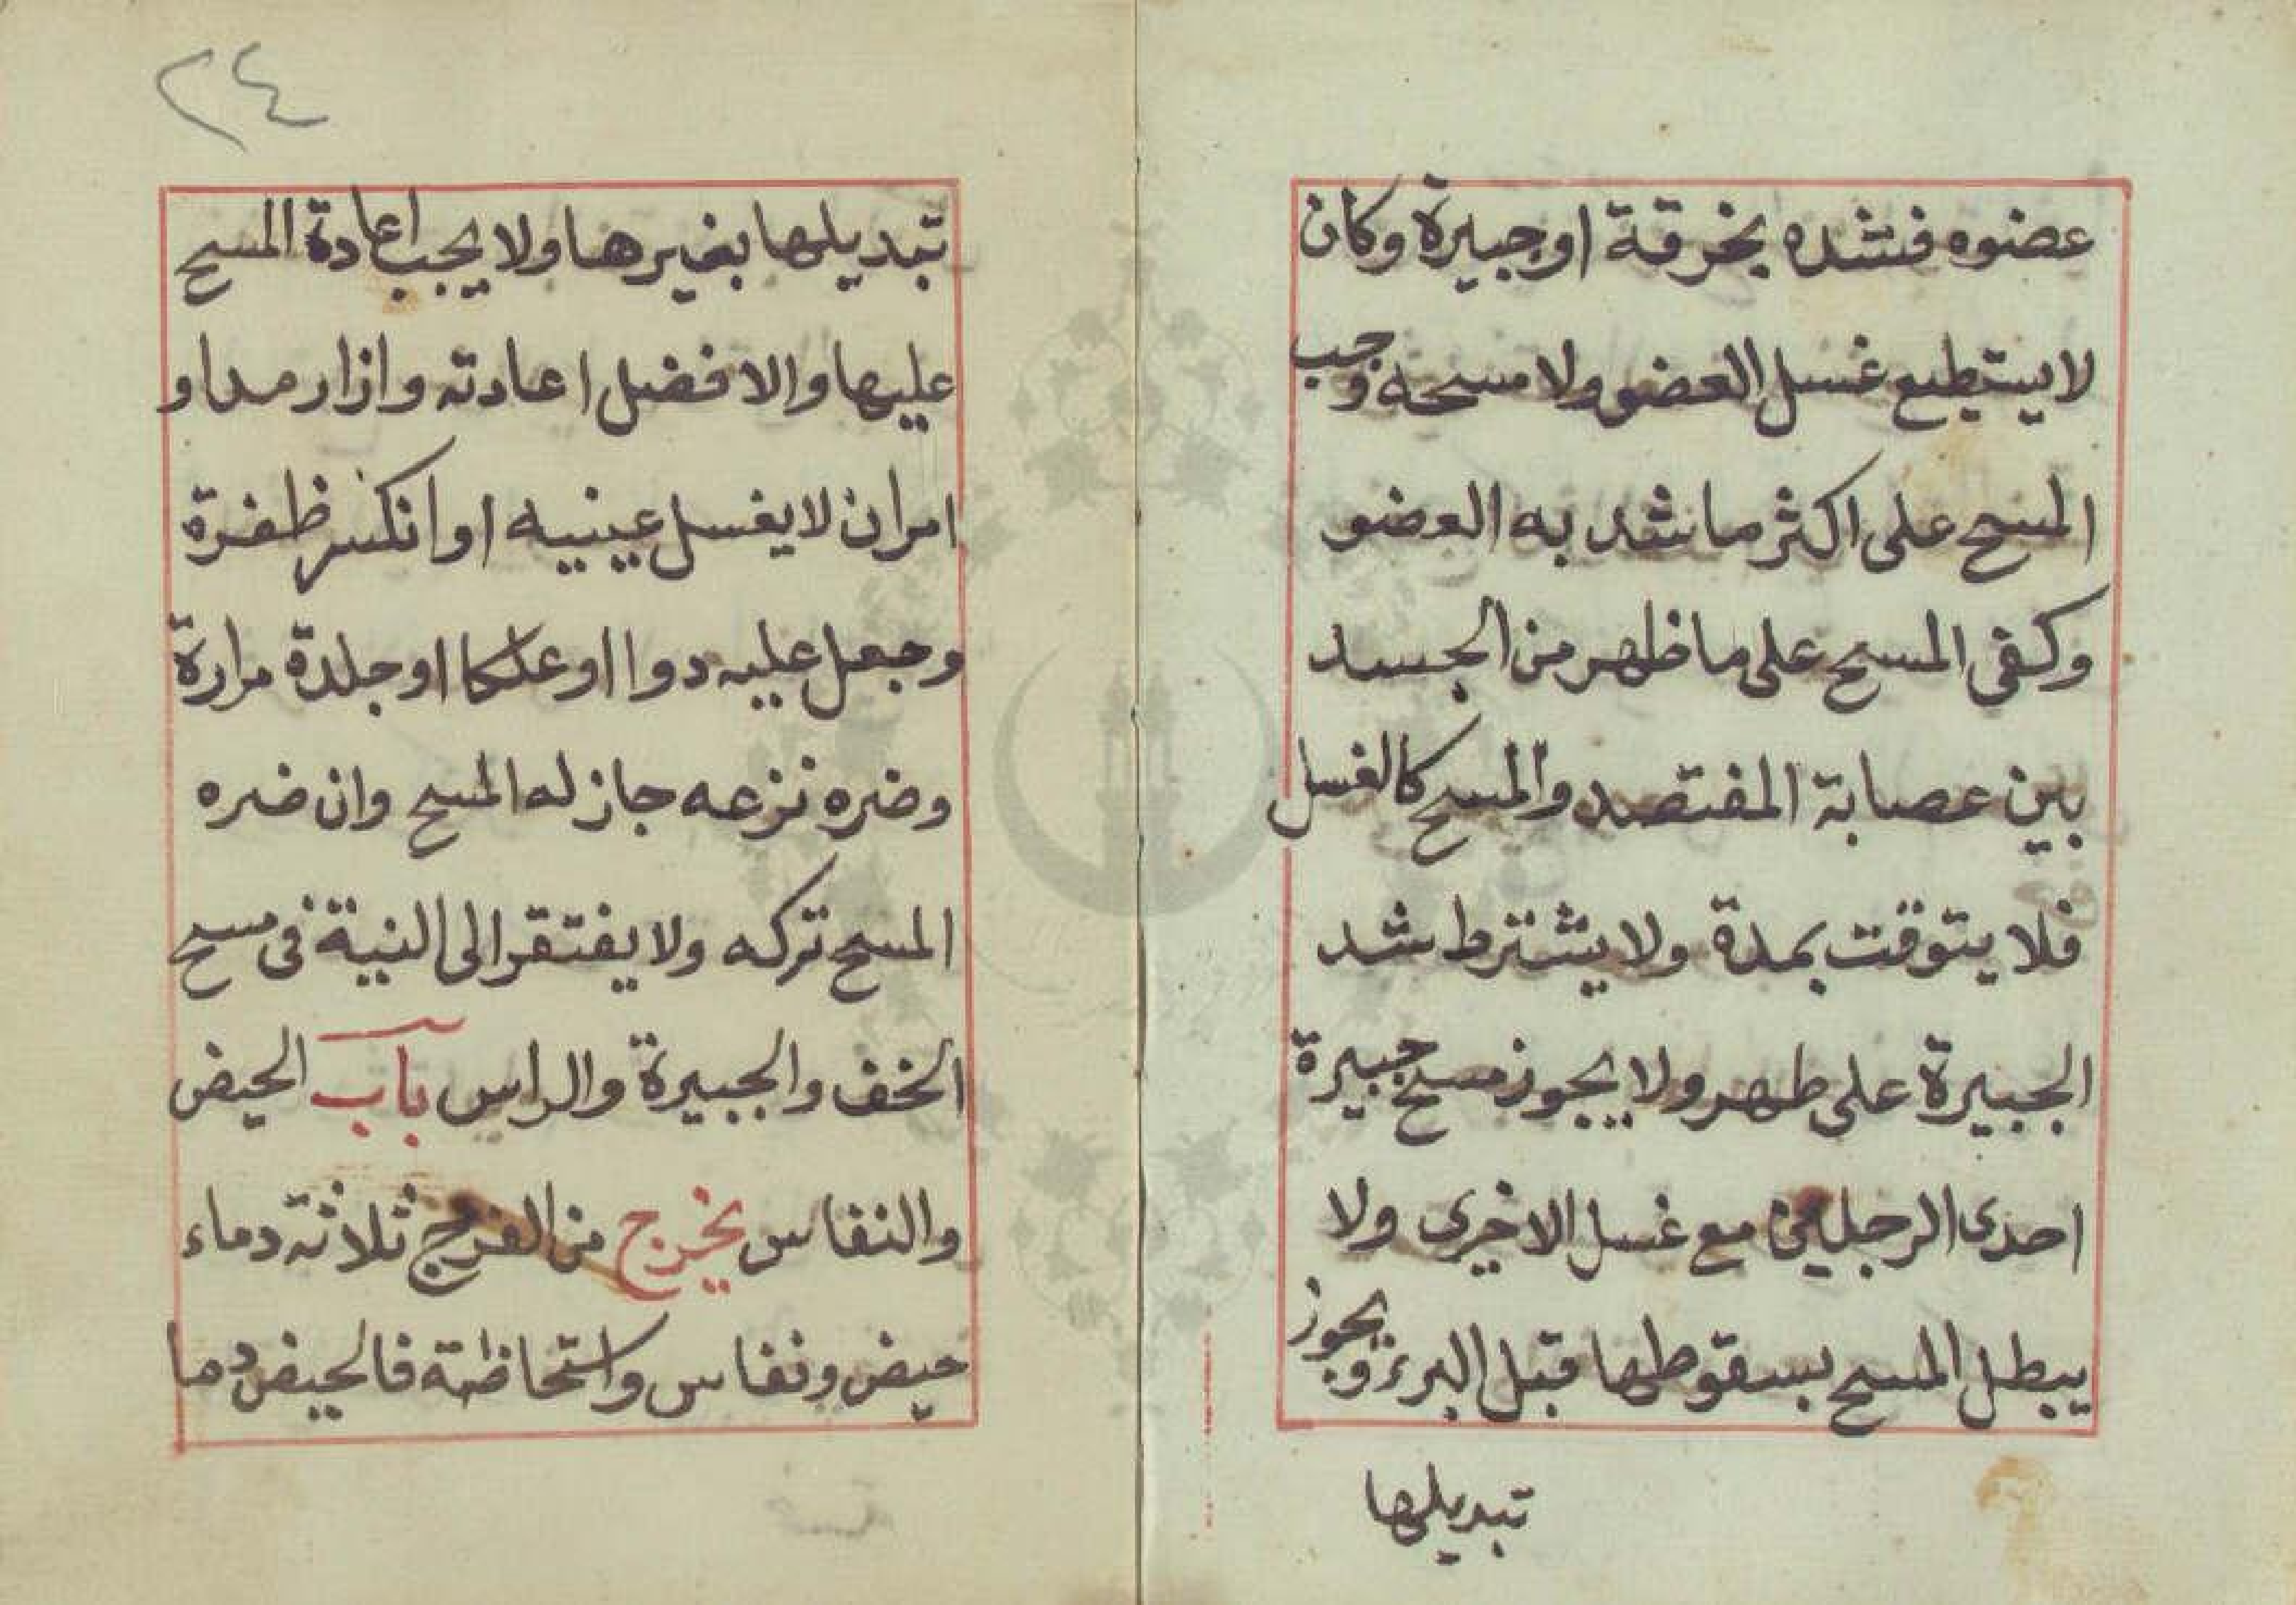 عضوه فشده بخرقة او جبيرة وكان
لا يستطيع غسل العضو ولا مسحه وجب
المسح على اكثر ما شد به العضو
وكفى المسح على ما ظهر من الجسد
بين عصابة المفتصد والمسح كالغسل
فلا يتوقت بمدة ولا يشترط شد
الجبيرة على طهر ولا يجوز مسح جبيرة
احدى الرجلين مع غسل الاخرى ولا
يبطل المسح بسقوطها قبل البرء ويجوز
تبديلها
٢٤
تبديلها بغيرها ولا يجب اعادة المسح
عليها والافضل اعادته واذا رمد او
امر ان لا يغسل عينيه او انكسر ظفرة
وجعل عليه دوا او علكا او جلدة مرارة
وضره نزعه جاز له المسح وان ضره
المسح تركه ولا يفتقر الى النية فى مسح
الخف والجبيرة والراس باب الحيض
والنفاس يخرج من الفرج ثلاثة دماء
حيض ونفاس واستحاظة فالحيض دما